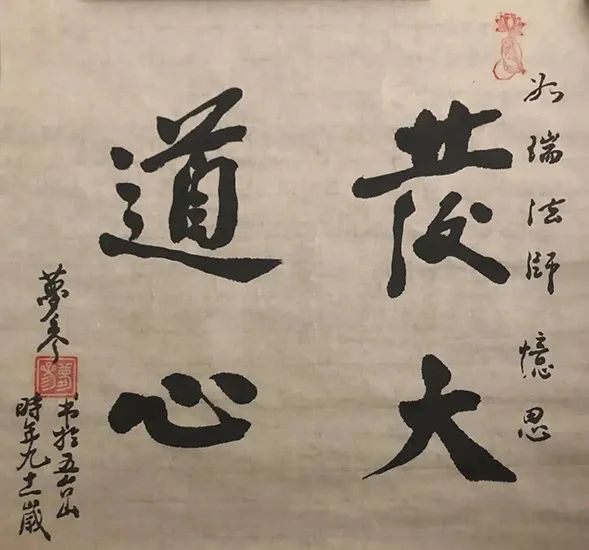 如瑞法師 憶思
發大
道心
夢參
夢參
书於五台山
時年九十一歲